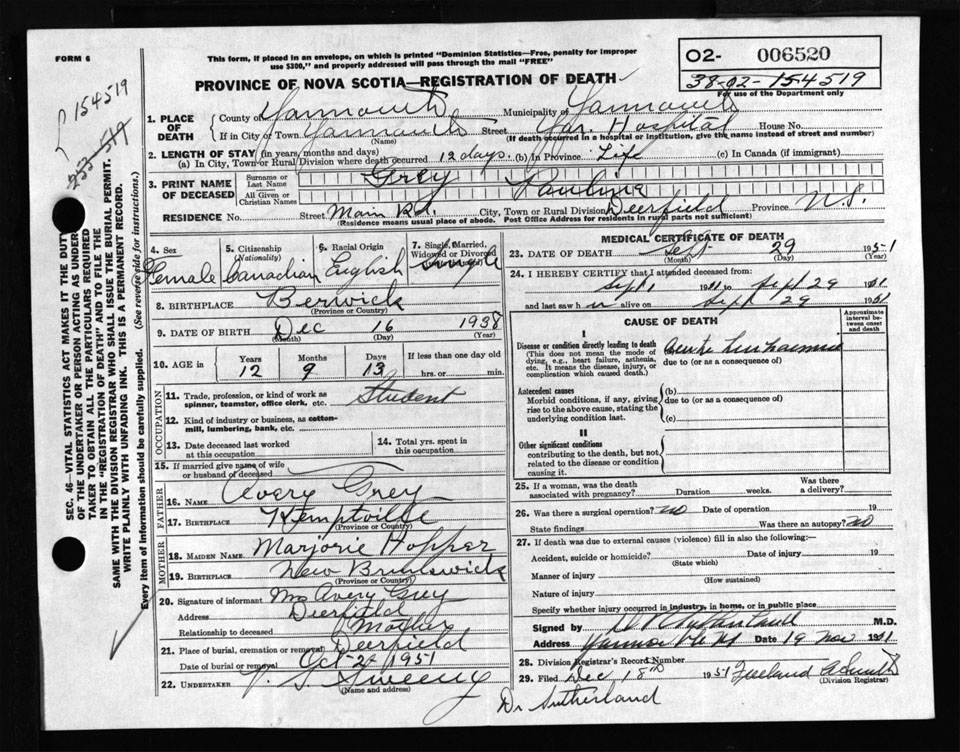 FORM 6
This form, if placed in an envelope, on which is printed "Dominion Statistics—Free, penalty for improper
use $300," and properly addressed will pass through the mail "FREE"
02- 006520
38-02-154519
For use of the Department only
PROVINCE OF NOVA SCOTIA—REGISTRATION OF DEATH
154519
SEC. 46—VITAL STATISTICS ACT MAKES IT THE DUTY
OF THE UNDERTAKER OR PERSON ACTING AS UNDER-
TAKER TO OBTAIN ALL THE PARTICULARS REQUIRED
IN THE "REGISTRATION OF DEATH" AND TO FILE IT
SAME WITH THE DIVISION REGISTRAR WHO SHALL ISSUE THE BURIAL PERMIT.
WRITE PLAINLY WITH UNFADING INK. THIS IS A PERMANENT RECORD.
Every item of Information should be carefully supplied. (See reverse side for instructions.)
1. PLACE OF DEATH
County of Yarmouth Municipality of Yarmouth
If in City or Town Yarmouth Street Yar. Hospital House No.
(Name) (If death occurred in a hospital or institution, give the name instead of street and number)
2. LENGTH OF STAY (in years, months and days)
(a) In City, Town or Rural Division where death occurred 12 days. (b) In Province Life (c) In Canada (if immigrant)
3. PRINT NAME OF DECEASED
Surname or Last Name Grey
All Given or Christian Names Pauline
RESIDENCE No. Street Main Rd. City, Town or Rural Division Deerfield Province N.S.
(Residence means usual place of abode. Post Office Address for residents in rural parts not sufficient)
4. Sex Female
5. Citizenship (Nationality) Canadian
6. Racial Origin English
7. Single, Married, Widowed or Divorced Single
8. BIRTHPLACE Berwick
(Province or Country)
9. DATE OF BIRTH Dec 16 1938
(Month) (Day) (Year)
10. AGE in Years 12 Months 9 Days 13 If less than one day old
hrs. or min.
OCCUPATION
11. Trade, profession, or kind of work as
spinner, teamster, office clerk, etc. Student
12. Kind of industry or business, as cotton-
mill, lumbering, bank, etc.
13. Date deceased last worked
at this occupation
14. Total yrs. spent in
this occupation
15. If married give name of wife
or husband of deceased
FATHER
16. NAME Avery Grey
17. BIRTHPLACE Kemptville
(Province or Country)
MOTHER
18. MAIDEN NAME Marjorie Hopper
19. BIRTHPLACE New Brunswick
(Province or Country)
20. Signature of informant Mrs Avery Grey
Address Deerfield
Relationship to deceased Mother
21. Place of burial, cremation or removal Deerfield
Date of burial or removal Oct 2 1951
22. UNDERTAKER V. S. Sweeny
(Name and address)
MEDICAL CERTIFICATE OF DEATH
23. DATE OF DEATH Sept 29 1951
(Month) (Day) (Year)
24. I HEREBY CERTIFY that I attended deceased from:
Sept 1 1951 to Sept 29 1951
and last saw h er alive on Sept 29 1951
CAUSE OF DEATH
Approximate interval between onset and death
I
Disease or condition directly leading to death (a) Acute Leukaemia
(This does not mean the mode of
dying, e.g., heart failure, asthenia,
etc. It means the disease, injury, or
complication which caused death.)
due to (or as consequence of)
Antecedent causes
Morbid conditions, if any, giving
rise to the above cause, stating the
underlying condition last.
(b)
due to (or as a consequence of)
(c)
II
Other significant conditions
contributing to the death, but not
related to the disease or condition
causing it.
25. If a woman, was the death
associated with pregnancy? Duration weeks. Was there
a delivery?
26. Was there a surgical operation? no Date of operation 19
State findings Was there an autopsy? no
27. If death was due to external causes (violence) fill in also the following:—
Accident, suicide or homicide? Date of injury 19
(State which)
Manner of injury
(How sustained)
Nature of injury
Specify whether injury occurred in industry, in home, or in public place
Signed by Sutherland M.D.
Address Yarmouth N.S. Date 19 Nov 1951
28. Division Registrar's Record Number
29. Filed Dec 18th 1951 Freeland A Smith
(Division Registrar)
Dr Sutherland